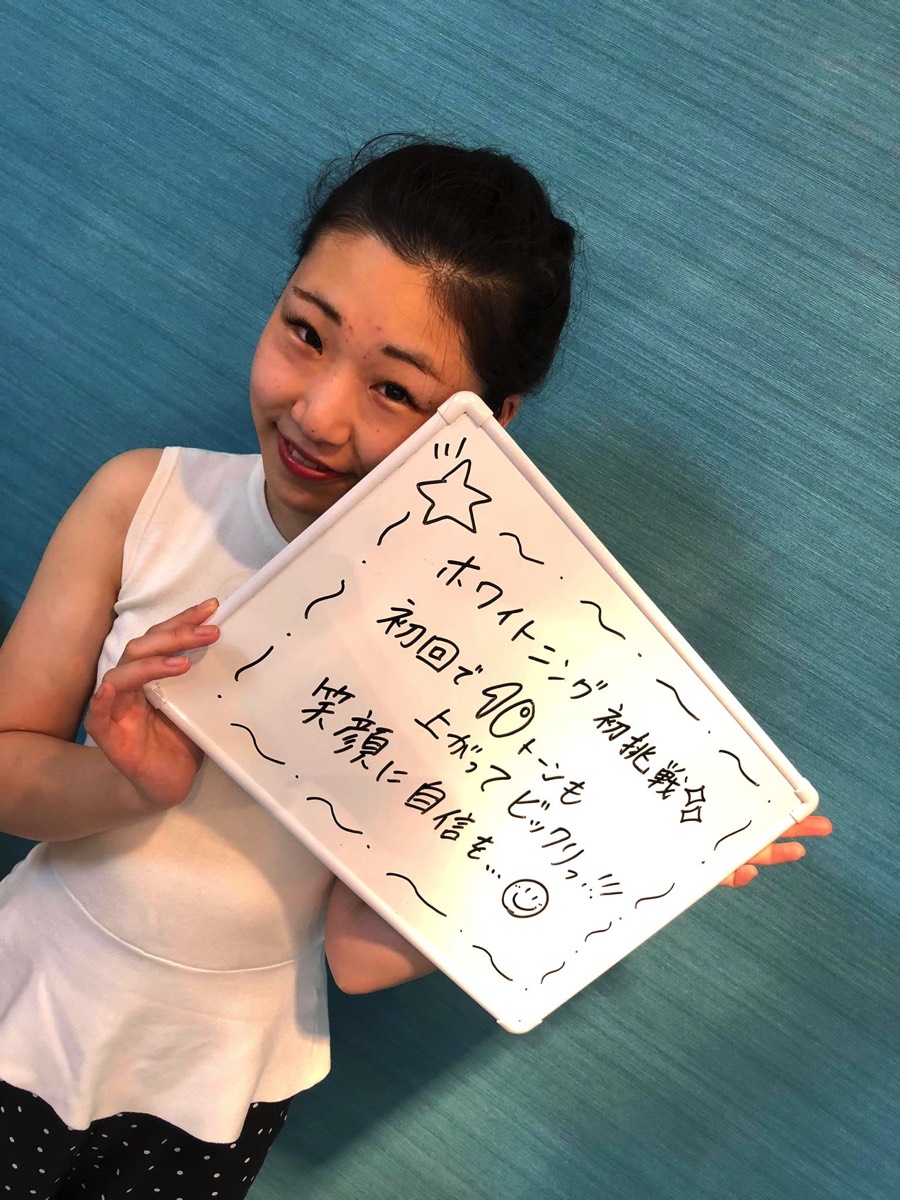 ホワイトニング初挑戦
初回で90トーンも
上がってビックリっ!!!
笑顔に自信も…